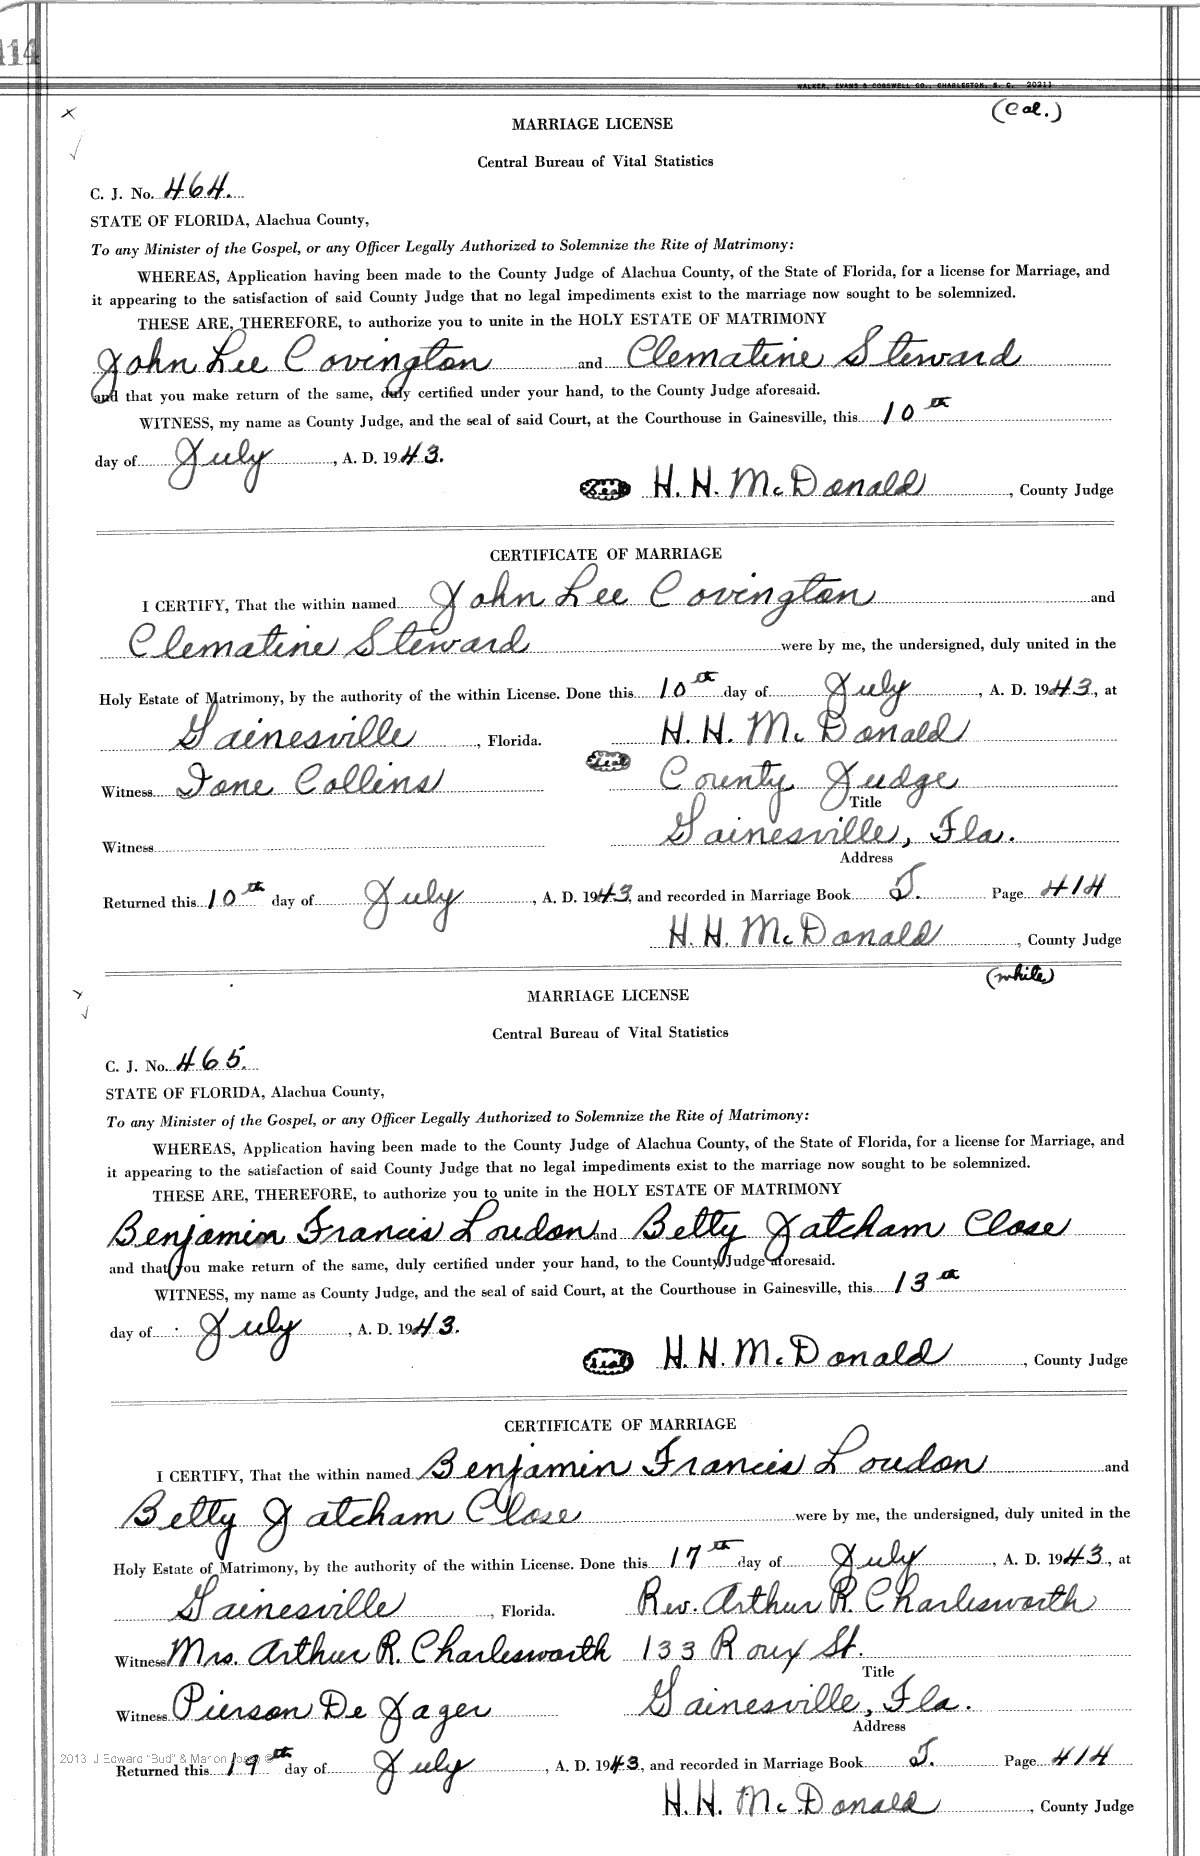 114
WALKER, EVANS & COGSWELL CO., CHARLESTON, S. C. 20211
(Col.)
MARRIAGE LICENSE
Central Bureau of Vital Statistics
C. J. No. 464.
STATE OF FLORIDA, Alachua County,
To any Minister of the Gospel, or any Officer Legally Authorized to Solemnize the Rite of Matrimony:
WHEREAS, Application having been made to the County Judge of Alachua County, of the State of Florida, for a license for Marriage, and
it appearing to the satisfaction of said County Judge that no legal impediments exist to the marriage now sought to be solemnized.
THESE ARE, THEREFORE, to authorize you to unite in the HOLY ESTATE OF MATRIMONY
John Lee Covington and Clematine Steward
and that you make return of the same, duly certified under your hand, to the County Judge aforesaid.
WITNESS, my name as County Judge, and the seal of said Court, at the Courthouse in Gainesville, this 10th
day of July, A. D. 1943.
Seal H. H. McDonald, County Judge
CERTIFICATE OF MARRIAGE
I CERTIFY, That the within named John Lee Covington and
Clematine Steward were by me, the undersigned, duly united in the
Holy Estate of Matrimony, by the authority of the within License. Done this 10th day of July, A. D. 1943, at
Gainesville, Florida. H. H. McDonald
Seal
Witness Ione Collins County Judge
Title
Gainesville, Fla.
Witness
Address
Returned this 10th day of July, A. D. 1943, and recorded in Marriage Book J. Page 414
H. H. McDonald, County Judge
(white)
MARRIAGE LICENSE
Central Bureau of Vital Statistics
C. J. No. 465.
STATE OF FLORIDA, Alachua County,
To any Minister of the Gospel, or any Officer Legally Authorized to Solemnize the Rite of Matrimony:
WHEREAS, Application having been made to the County Judge of Alachua County, of the State of Florida, for a license for Marriage, and
it appearing to the satisfaction of said County Judge that no legal impediments exist to the marriage now sought to be solemnized.
THESE ARE, THEREFORE, to authorize you to unite in the HOLY ESTATE OF MATRIMONY
Benjamin Francis Loudon and Betty Jatcham Close
and that you make return of the same, duly certified under your hand, to the County Judge aforesaid.
WITNESS, my name as County Judge, and the seal of said Court, at the Courthouse in Gainesville, this 13th
day of July, A. D. 1943.
Seal H. H. McDonald, County Judge
CERTIFICATE OF MARRIAGE
I CERTIFY, That the within named Benjamin Francis Loudon and
Betty Jatcham Close were by me, the undersigned, duly united in the
Holy Estate of Matrimony, by the authority of the within License. Done this 17th day of July, A. D. 1943, at
Gainesville, Florida. Rev. Arthur R. Charlesworth
Witness Mrs. Arthur R. Charlesworth 133 Roux St.
Title
Witness Pierson De Jager Gainesville, Fla.
Address
2013 J Edward "Bud" & Marion
Returned this 19th day of July, A. D. 1943, and recorded in Marriage Book J. Page 414
H. H. McDonald, County Judge